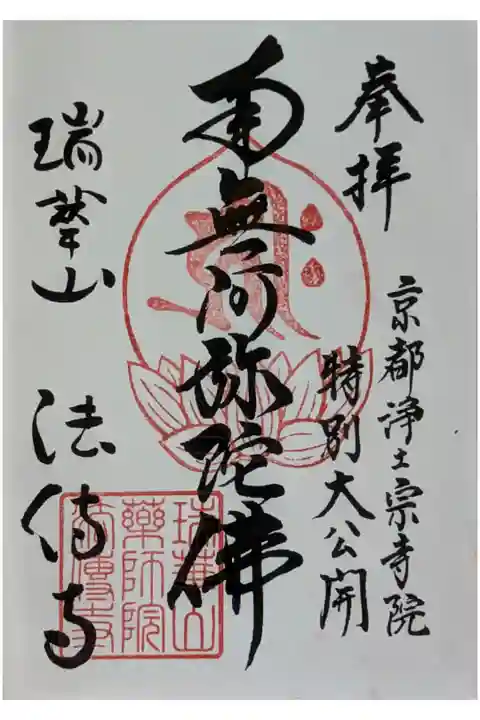 奉拝
京都浄土宗寺院
特別大公開
南無阿弥陀佛
瑞華山 法傳寺
瑞華山
藥師院
法傳寺